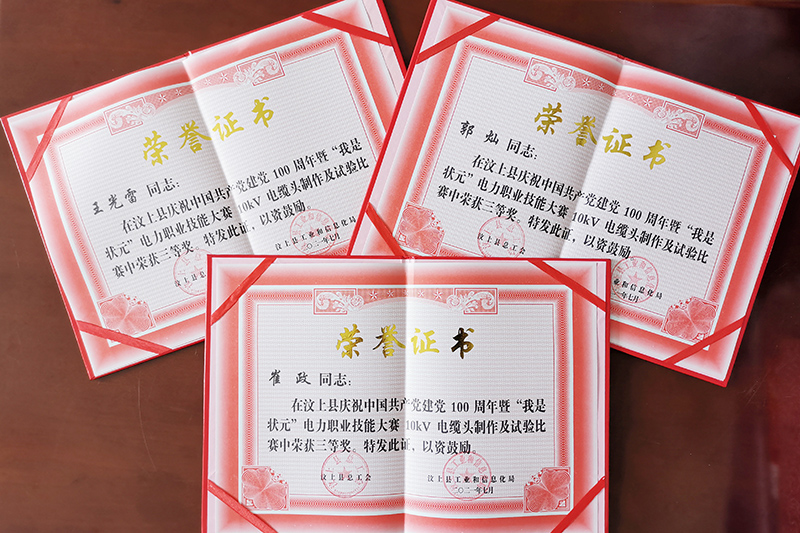 荣誉证书
王光雷 同志：
在汶上县庆祝中国共产党建党 100 周年暨“我是
状元”电力职业技能大赛 10kV 电缆头制作及试验比
赛中荣获三等奖。特发此证，以资鼓励。
汶上县总工会
汶上县工业和信息化局
二〇二一年七月
荣誉证书
郭 灿 同志：
在汶上县庆祝中国共产党建党 100 周年暨“我是
状元”电力职业技能大赛 10kV 电缆头制作及试验比
赛中荣获三等奖。特发此证，以资鼓励
汶上县总工会
工业和信息化局
二一年七月
荣誉证书
崔 政 同志：
在汶上县庆祝中国共产党建党 100 周年暨“我是
状元”电力职业技能大赛 10kV 电缆头制作及试验比
赛中荣获三等奖。特发此证，以资鼓励。
汶上县总工会
汶上县工业和信息化局
二〇二一年七月